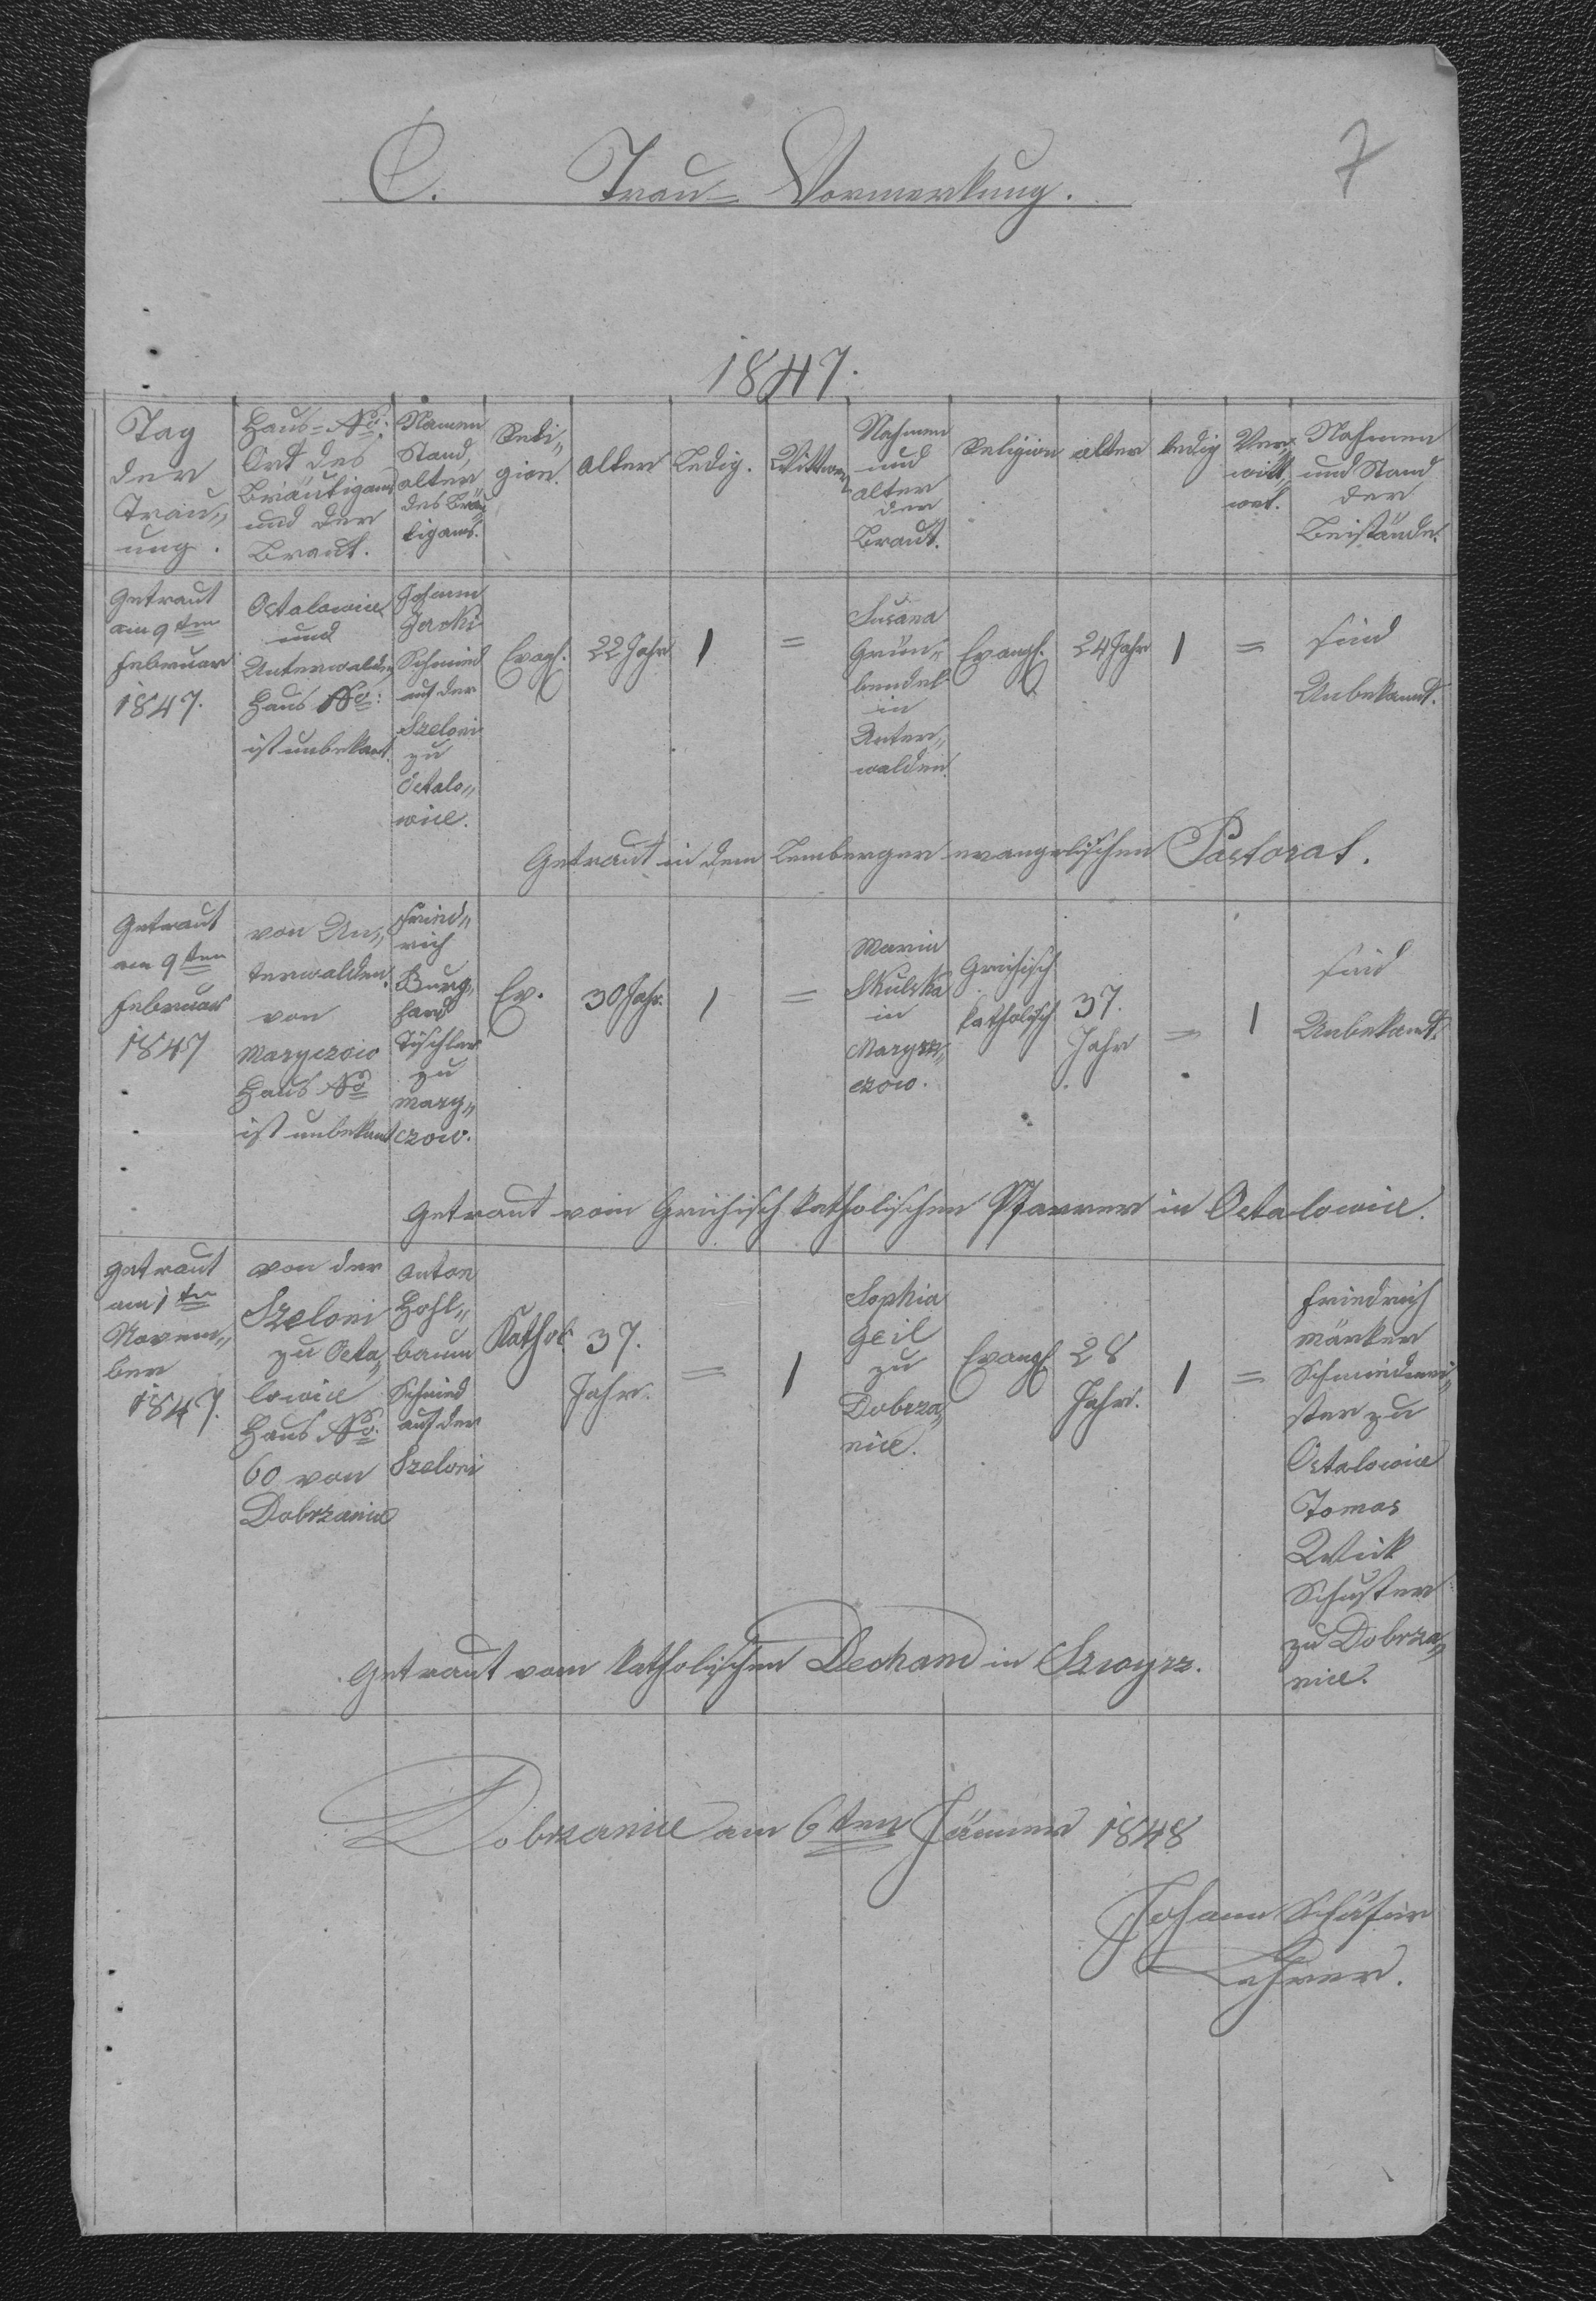 C. Trau=Vormerkung.
7
1847.
Tag
der
Trau„
ung.
Haus=No:
Ort des
Bräutigams
und der
Braut.
Namen
Stand,
alter
des Bräu„
tigams.
Reli„
gion.
Alter
Ledig.
Wittwer
Nahmen
und
alter
der
Braut.
Religion
alter
ledig
Ver„
witt„
wet.
Nahmen
und Stand
der
Beistände.
Getraut
am 9ten
Februar
1847.
Ostalowice
und
Unterwalden
Haus No:
ist unbekant.
Johann
Schmied
auf der
Szeloni
zu
Ostalo„
wice.
Evagl.
22 Jahr
1
=
Susana
Grün„
bendel
in
Unter„
walden.
Evangl.
24 Jahr
1
=
sind
Unbekannt.
Getraut in dem Lemberger evangelischen Pastorat.
Getraut
am 9ten
Februar
1847
von Un„
terwalden.
von
Maryczow
Haus No
ist unbekant
Fried„
rich
Burg„
hard
Tischler
zu
Mary„
czow.
Ev.
30 Jahr.
1
=
Maria
Skulska
in
czow.
Grichisch
katholisch
37.
Jahr
=
1
sind
Unbekant.
Getraut vom Grichisch katholischen Pfarrer in Ostalowice.
Getraut
am 1ten
Novem„
ber
1847.
von der
Szeloni
zu Osta„
lowice
Haus No:
60 von
Dobrzanice
Anton
Hohl„
baum
Schmied
auf der
Szeloni
Kathol.
37.
Jahr.
=
1
Sophia
Geil
zu
Dobrza„
nice.
Evangl.
28
Jahr.
1
=
Friedrich
Märker
Schmiedmei„
ster zu
Ostalowice
Tomas
Wick
Schuster
zu Dobrza„
nice.
Getraut vom katholischen Dechand in
Dobrzanice am 6ten Jänner 1848
Johann Schäfer
Lehrer.